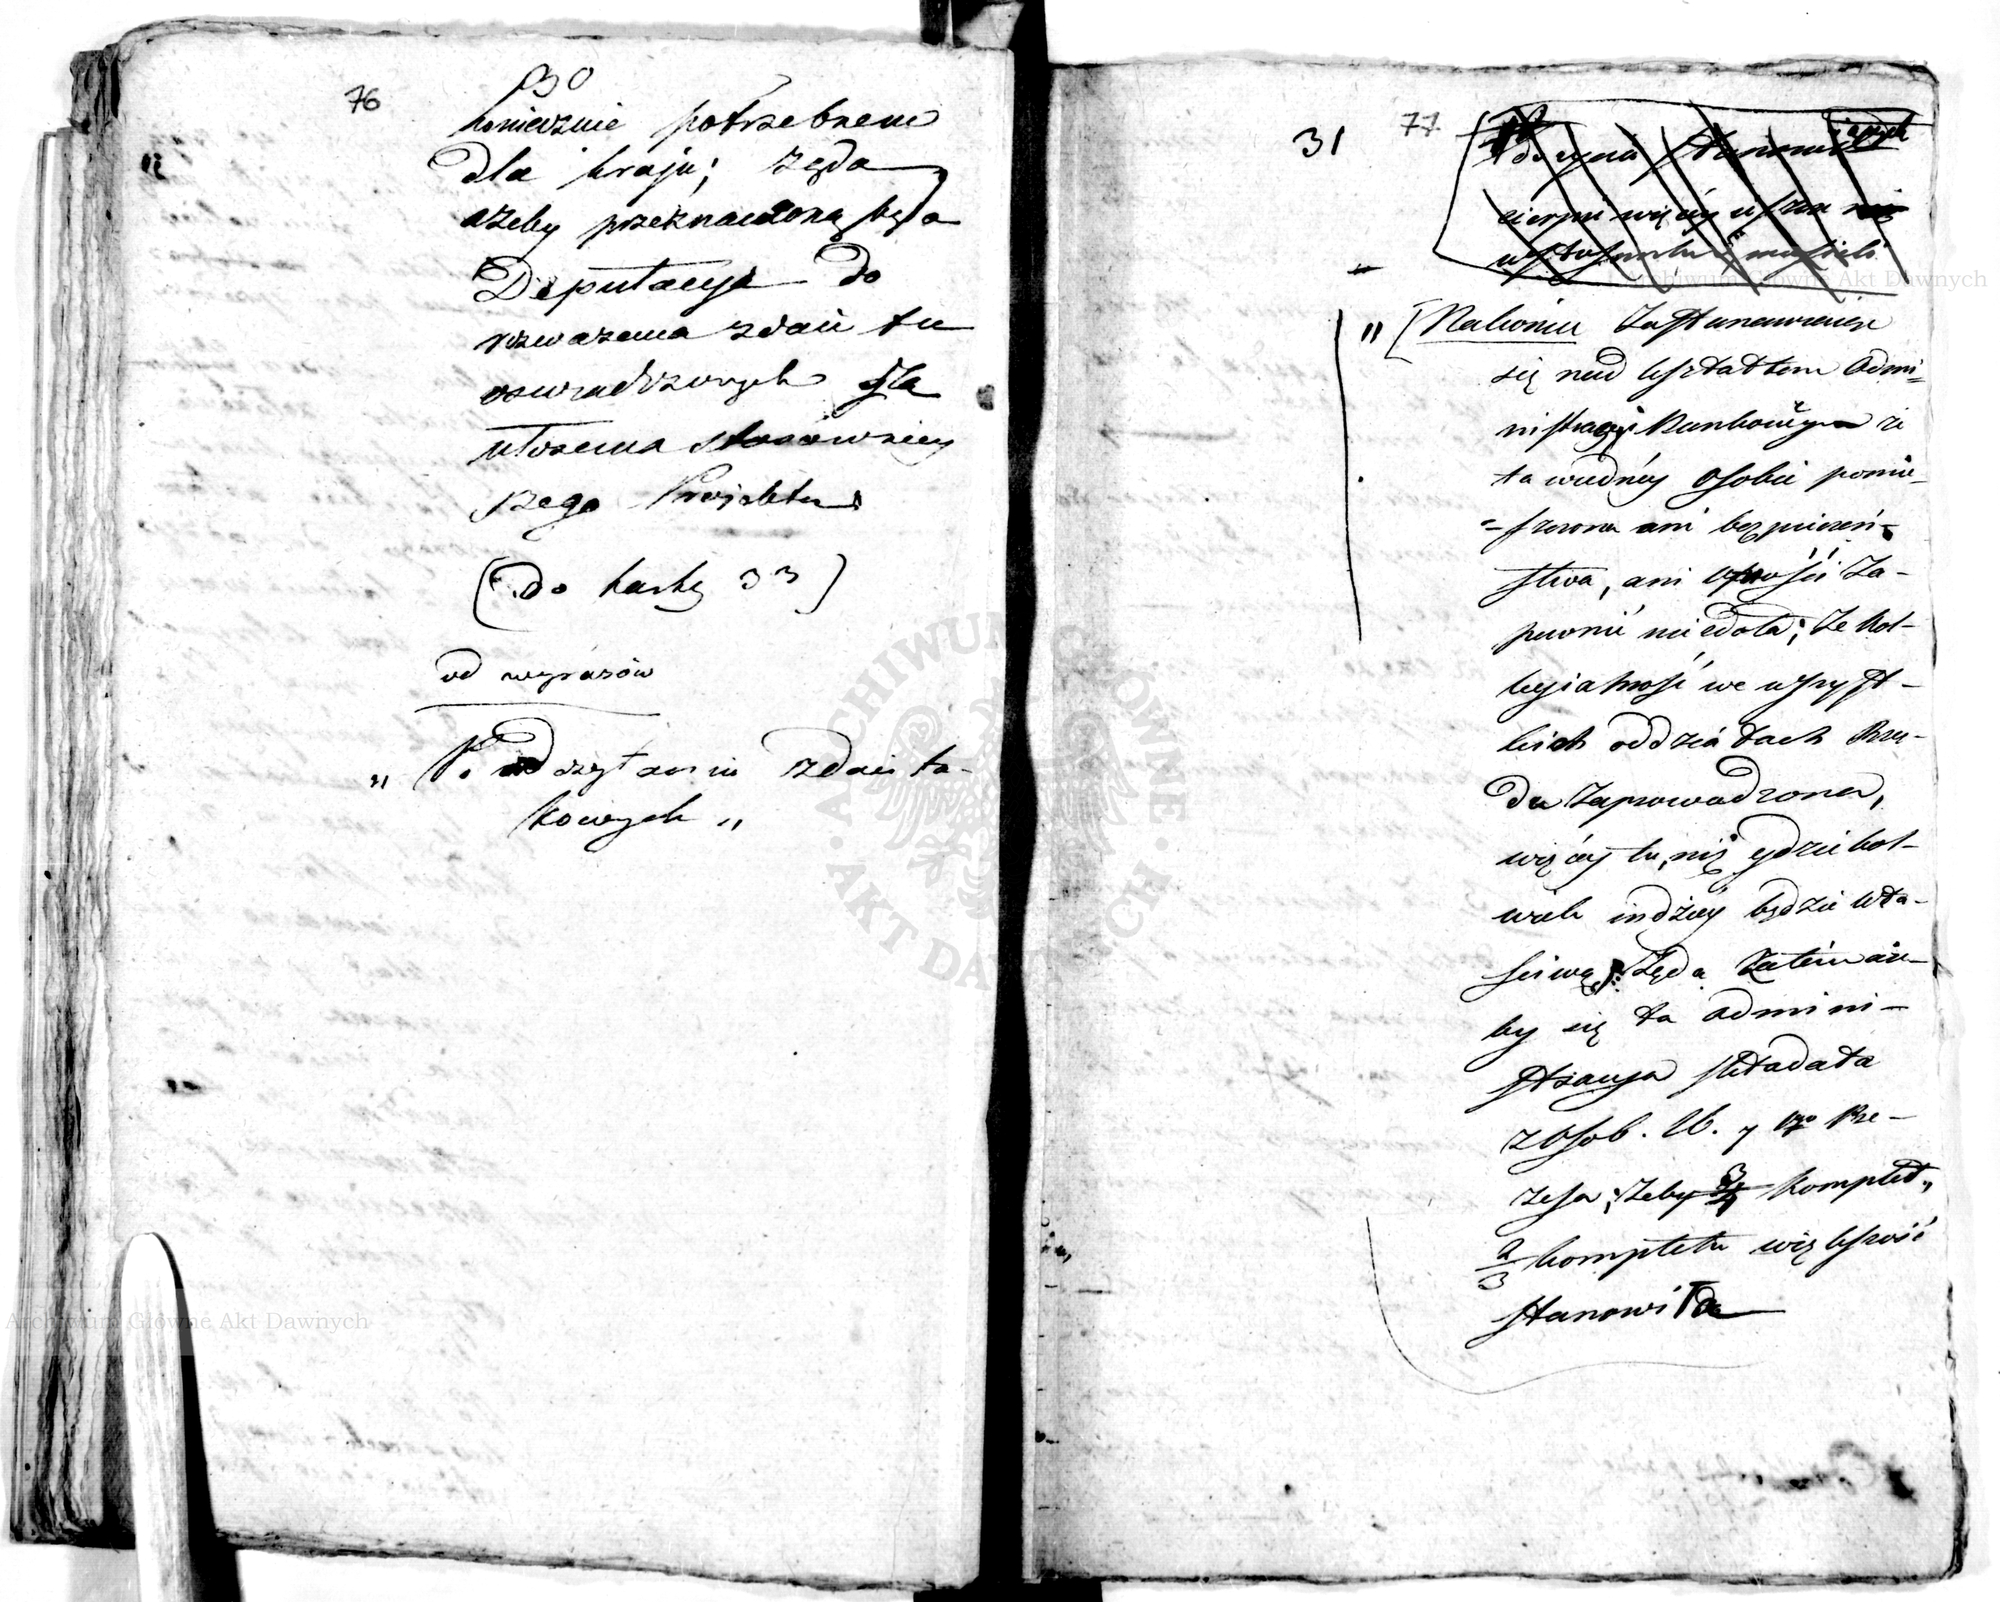 76
30
koniecznie potrzebnem
dla kraju; żąda
ażeby przeznaczoną była
Deputacya do
rozważenia zdań tu
oświadczonych dla
ułożenia stosowniey
szego Projektu
(do kartę 33)
od wyrazów
" Po odczytaniu zdań ta-
kowych "
31
77
" [Nakoniec Zastanowiwszy
się nad kształtem Admi=
nistracyi Bankowey że
ta w iedney osobie pomie-
=szczona ani bezpieczeń-
stwa, ani ufności Za-
pewnić nie zdoła; Że Kol-
legialność we wszyst-
kich oddziałach Rzą-
du Zaprowadzona,
więcey tu, niż gdzie kol-
wiek indziey będzie wła-
ściwą; Żąda Zatém aże-
by się ta admini-
stracya składała
z Osob. 16. y Pre-
zesa; żeby 3/4 Komplet,
2/3 kompletu większość
stanowiła
Archiwum Główne Akt Dawnych
ARCHIWUM GŁÓWNE · AKT DAWNYCH ·
Archiwum Główne Akt Dawnych